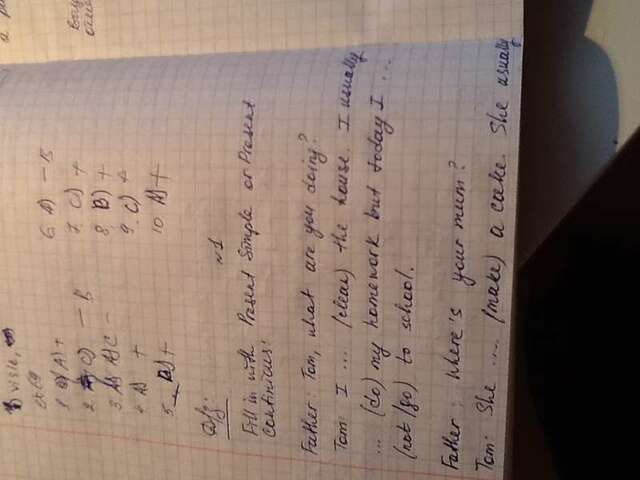 visit,
ex69
1 A) +
2. C) - B
3. A) C -
4 A) +
5. B) +
6 A) - B
7 C) +
8 B) +
9. C) +
10 A) +
D/z:
N1
Fill in with Present Simple or Present
Continious:
Father: Tom, what are you doing?
Tom: I ... (clean) the house. I usually
... (do) my homework but today I ...
(not/go) to school.
Father: Where's your mum?
Tom: She .... (make) a cake. She usually